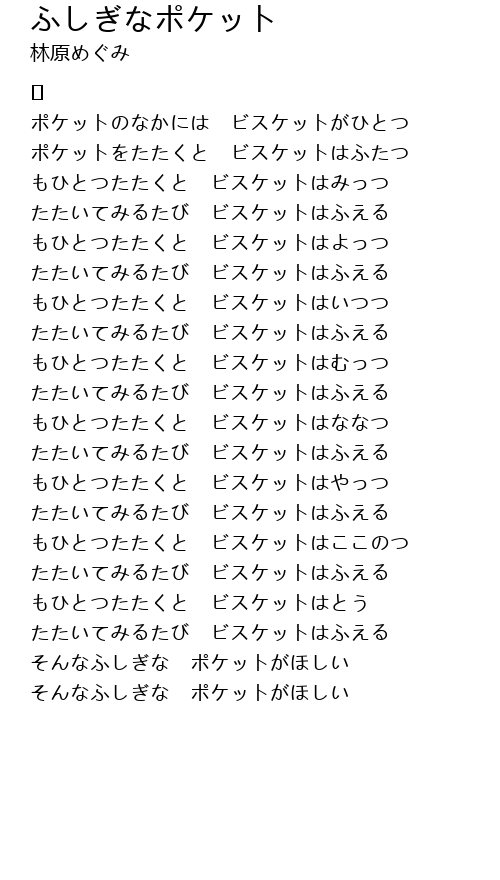 ふしぎなポケット
林原めぐみ
ポケットのなかには　ビスケットがひとつ
ポケットをたたくと　ビスケットはふたつ
もひとつたたくと　ビスケットはみっつ
たたいてみるたび　ビスケットはふえる
もひとつたたくと　ビスケットはよっつ
たたいてみるたび　ビスケットはふえる
もひとつたたくと　ビスケットはいつつ
たたいてみるたび　ビスケットはふえる
もひとつたたくと　ビスケットはむっつ
たたいてみるたび　ビスケットはふえる
もひとつたたくと　ビスケットはななつ
たたいてみるたび　ビスケットはふえる
もひとつたたくと　ビスケットはやっつ
たたいてみるたび　ビスケットはふえる
もひとつたたくと　ビスケットはここのつ
たたいてみるたび　ビスケットはふえる
もひとつたたくと　ビスケットはとう
たたいてみるたび　ビスケットはふえる
そんなふしぎな　ポケットがほしい
そんなふしぎな　ポケットがほしい